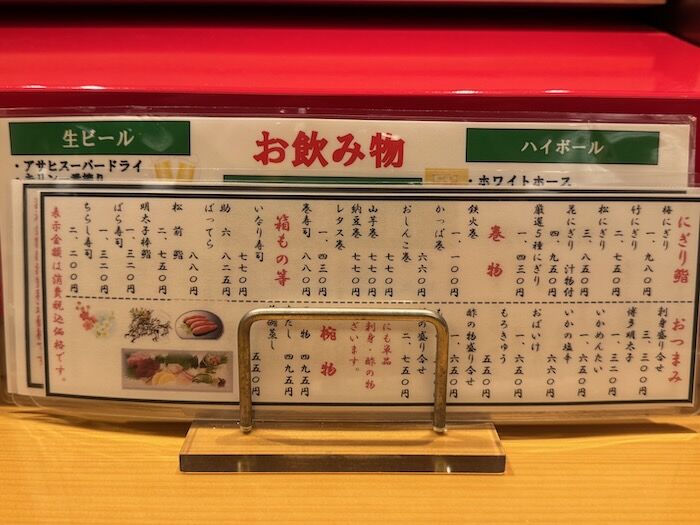 生ビール
お飲み物
ハイボール
・アサヒスーパードライ
・ホワイトホース
にぎり鮨
梅にぎり
一、九八〇円
竹にぎり
二、七五〇円
松にぎり
花にぎり 汁物付
厳選5種にぎり
巻物
鉄火巻
一、一〇〇円
かっぱ巻
六六〇円
おしんこ巻
山芋巻 七七〇円
納豆巻 七七〇円
レタス巻
一、四三〇円
巻寿司 八八〇円
箱もの等
いなり寿司
助六 八二五円
ばってら
八八〇円
松前鮨
二、七五〇円
明太子棒鮨
一、三二〇円
ばら寿司
一、三二〇円
ちらし寿司
二、二〇〇円
おつまみ
刺身盛り合せ
三、三〇〇円
博多明太子
一、三二〇円
いかめんたい
一、六五〇円
いかの塩辛
六五〇円
おばいけ
一、六五〇円
もろきゅう
五五〇円
酢の物盛り合せ
一、六五〇円
の盛り合せ
二、七五〇円
にも単品
刺身・酢の物
ございます。
椀物
物 四九五円
だし 四九五円
蒸し
五五〇円
表示金額は消費税込価格です。